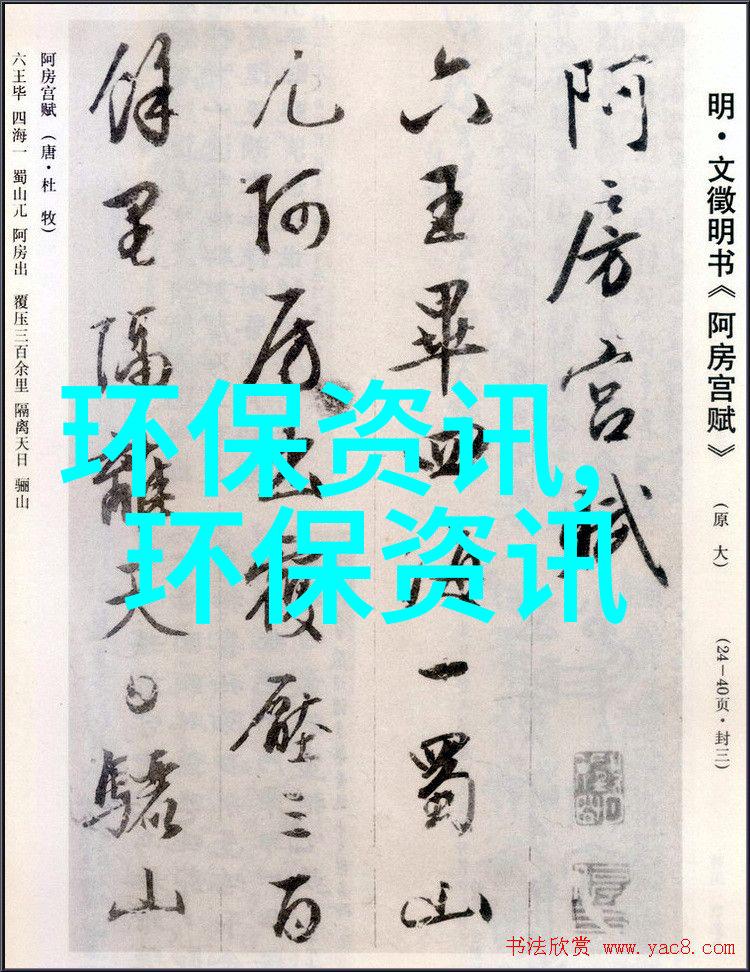 明·文徵明书《阿房宫赋》 (原大) (24—40页·封三)
阿房宫賦
六王畢四海一蜀山
兀阿房出覆壓三百
餘里隔離天日驪山
阿房宫赋(唐·杜牧)
六王毕 四海一 蜀山兀 阿房出 覆压三百余里 隔离天日 骊山
环保资讯,
环保资讯
书法欣赏 www.yac8.com